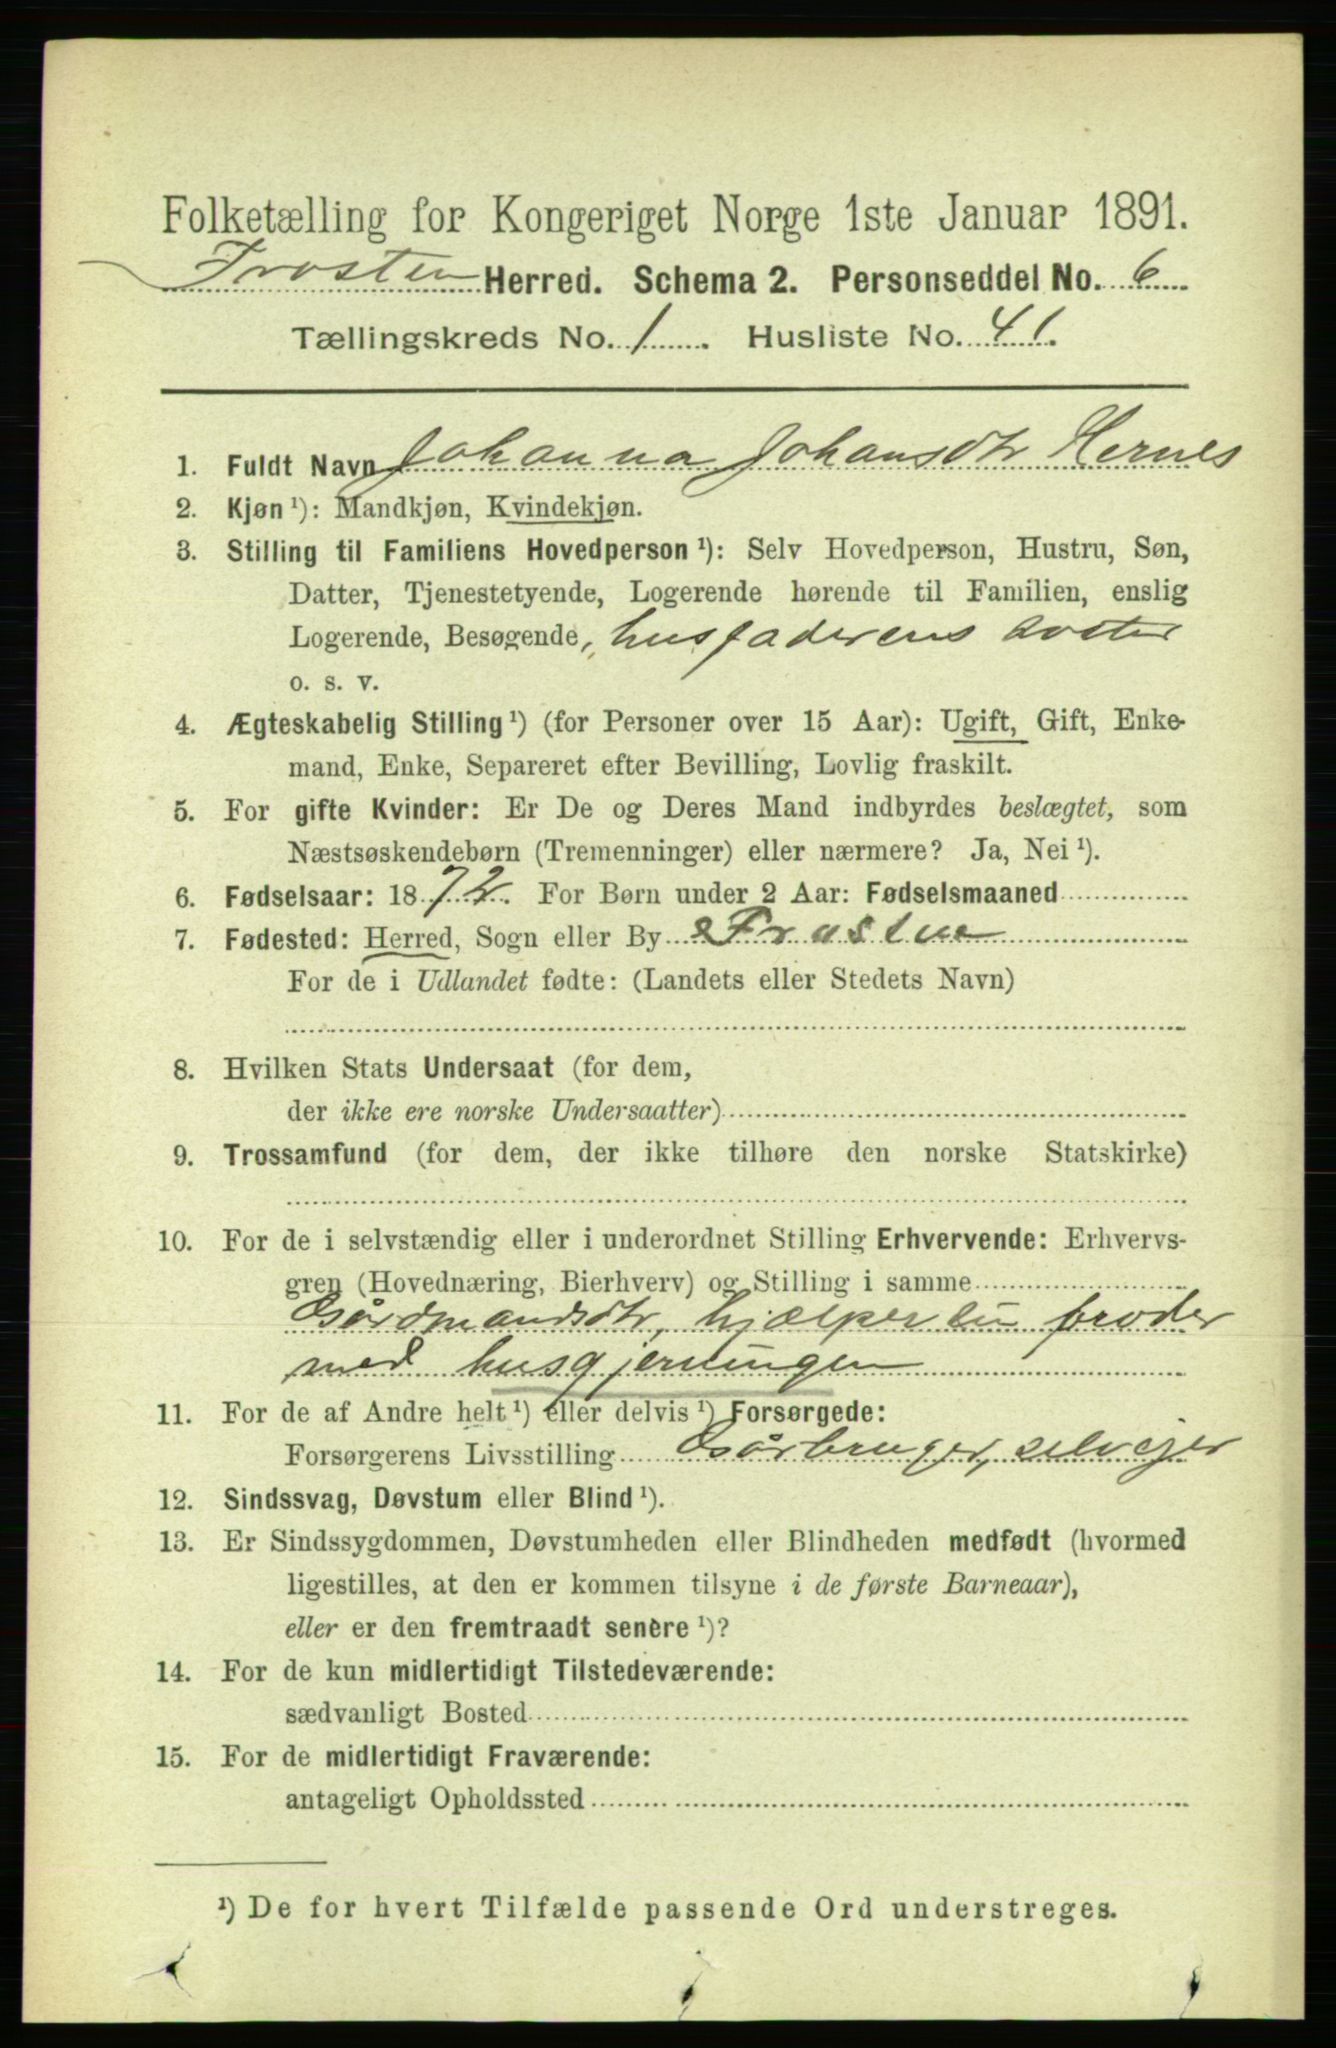 Folketælling for Kongeriget Norge 1ste Januar 1891.
Frosten Herred. Schema 2. Personseddel No. 6
Tællingskreds No. 1. Husliste No. 41.
1. Fuldt Navn Johanna Johansdtr Hernes
2. Kjøn ¹): Mandkjøn, Kvindekjøn.
3. Stilling til Familiens Hovedperson ¹): Selv Hovedperson, Hustru, Søn,
Datter, Tjenestetyende, Logerende hørende til Familien, enslig
Logerende, Besøgende, husfaderens
o. s. v.
4. Ægteskabelig Stilling ¹) (for Personer over 15 Aar): Ugift, Gift, Enke-
mand, Enke, Separeret efter Bevilling, Lovlig fraskilt.
5. For gifte Kvinder: Er De og Deres Mand indbyrdes beslægtet, som
Næstsøskendebørn (Tremenninger) eller nærmere? Ja, Nei ¹).
6. Fødselsaar: 1872. For Børn under 2 Aar: Fødselsmaaned
7. Fødested: Herred, Sogn eller By
For de i Udlandet fødte: (Landets eller Stedets Navn)
8. Hvilken Stats Undersaat (for dem,
der ikke ere norske Undersaatter)
9. Trossamfund (for dem, der ikke tilhøre den norske Statskirke)
10. For de i selvstændig eller i underordnet Stilling Erhvervende: Erhvervs-
gren (Hovednæring, Bierhverv) og Stilling i samme
Gårdmandsdtr, hjælper sin broder
med husgjerningen
11. For de af Andre helt ¹) eller delvis ¹) Forsørgede:
Forsørgerens Livsstilling Gårbruger, selvejer
12. Sindssvag, Døvstum eller Blind ¹).
13. Er Sindssygdommen, Døvstumheden eller Blindheden medfødt (hvormed
ligestilles, at den er kommen tilsyne i de første Barneaar),
eller er den fremtraadt senere ¹)?
14. For de kun midlertidigt Tilstedeværende:
sædvanligt Bosted
15. For de midlertidigt Fraværende:
antageligt Opholdssted
¹) De for hvert Tilfælde passende Ord understreges.